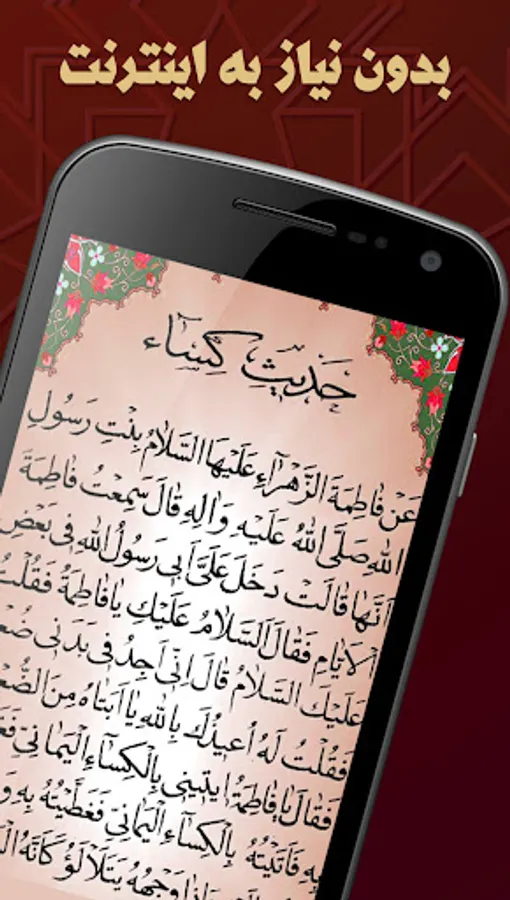 بدون نیاز به اینترنت
حَدیثِ کِسٰاء
عَنْ فاطِمَةَ الزَّهْرآءِ عَلَیْهَا السَّلامُ بِنْتِ رَسُولِ
اللهِ صَلَّی اللهُ عَلَیْهِ وَالِهِ قالَ سَمِعْتُ فاطِمَةَ
اَنَّها قالَتْ دَخَلَ عَلَیَّ اَبی رَسُولُ اللهِ فی بَعْضِ
الْاَیّامِ فَقالَ اَلسَّلامُ عَلَیْكِ یا فاطِمَةُ فَقُلْتُ
عَلَیْكَ السَّلامُ قالَ اِنّی اَجِدُ فی بَدَنی
فَقُلْتُ لَهُ اُعیذُكَ بِاللهِ یا اَبَتاهُ مِنَ
فَقالَ یا فاطِمَةُ ایتینی بِالْکِسآءِ الْیَمانیّ
بِهِ فَاَتَیْتُهُ بِالْکِسآءِ الْیَمانیّ فَغَطَّیْتُهُ بِهِ
وَجْهُهُ یَتَلَأْلَؤُ کَاَنَّهُ